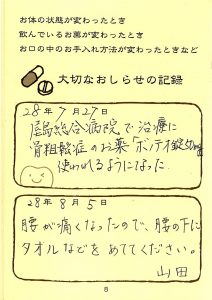 お体の状態が変わったとき
飲んでいるお薬が変わったとき
お口の中のお手入れ方法が変わったときなど
大切なおしらせの記録
28年7月27日
総合病院で治療に
骨粗鬆症のお薬ボノテオ錠50mg
使われるようになった
28年8月5日
腰が痛くなったので、腰の下に
タオルなどをあててください。
山田
8